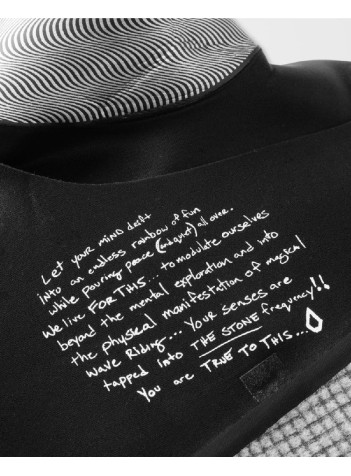 Let your mind drift
into an endless rainbow of fun
while pouring peace (and quiet) all over.
We live FOR THIS... to modulate ourselves
beyond the mental exploration and into
the physical manifestation of magical
wave riding... Your senses are
tapped into THE STONE frequency!!
You are TRUE TO THIS...